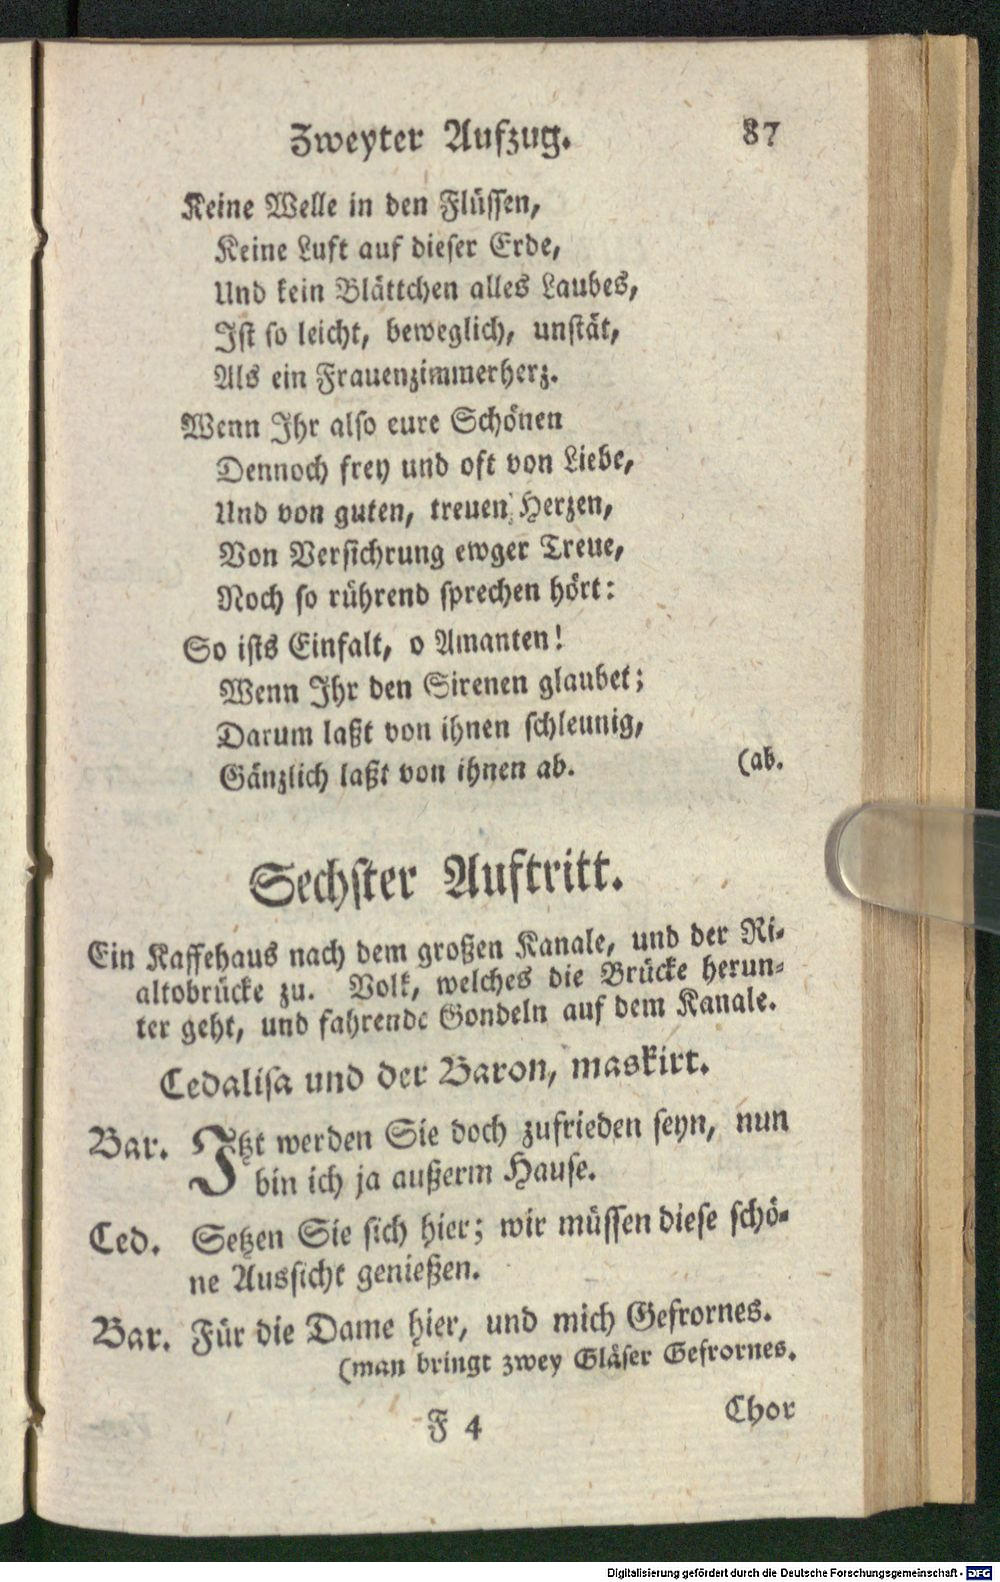 Zweyter Aufzug. 87
Keine Welle in den Flüssen,
Keine Luft auf dieser Erde,
Und kein Blättchen alles Laubes,
Ist so leicht, beweglich, unstät,
Als ein Frauenzimmerherz.
Wenn Ihr also eure Schönen
Dennoch frey und oft von Liebe,
Und von guten, treuen Herzen,
Von Versichrung ewger Treue,
Noch so rührend sprechen hört:
So ists Einfalt, o Amanten!
Wenn Ihr den Sirenen glaubet;
Darum laßt von ihnen schleunig,
Gänzlich laßt von ihnen ab. (ab.
Sechster Auftritt.
Ein Kaffehaus nach dem großen Kanale, und der Ri-
altobrücke zu. Volk, welches die Brücke herun-
ter geht, und fahrende Gondeln auf dem Kanale.
Cedalisa und der Baron, maskirt.
Bar. Itzt werden Sie doch zufrieden seyn, nun
bin ich ja außerm Hause.
Ced. Setzen Sie sich hier; wir müssen diese schö-
ne Aussicht genießen.
Bar. Für die Dame hier, und mich Gefrornes.
(man bringt zwey Gläser Gefrornes.
F 4 Chor
Digitalisierung gefördert durch die Deutsche Forschungsgemeinschaft - DFG